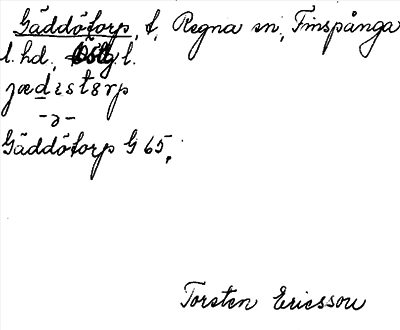 Gäddötorp, t, Regna sn, Finspånga
l. hd, Östg l.
jædistɵrp
-ə-
Gäddötorp G 65,
Torsten Ericsson